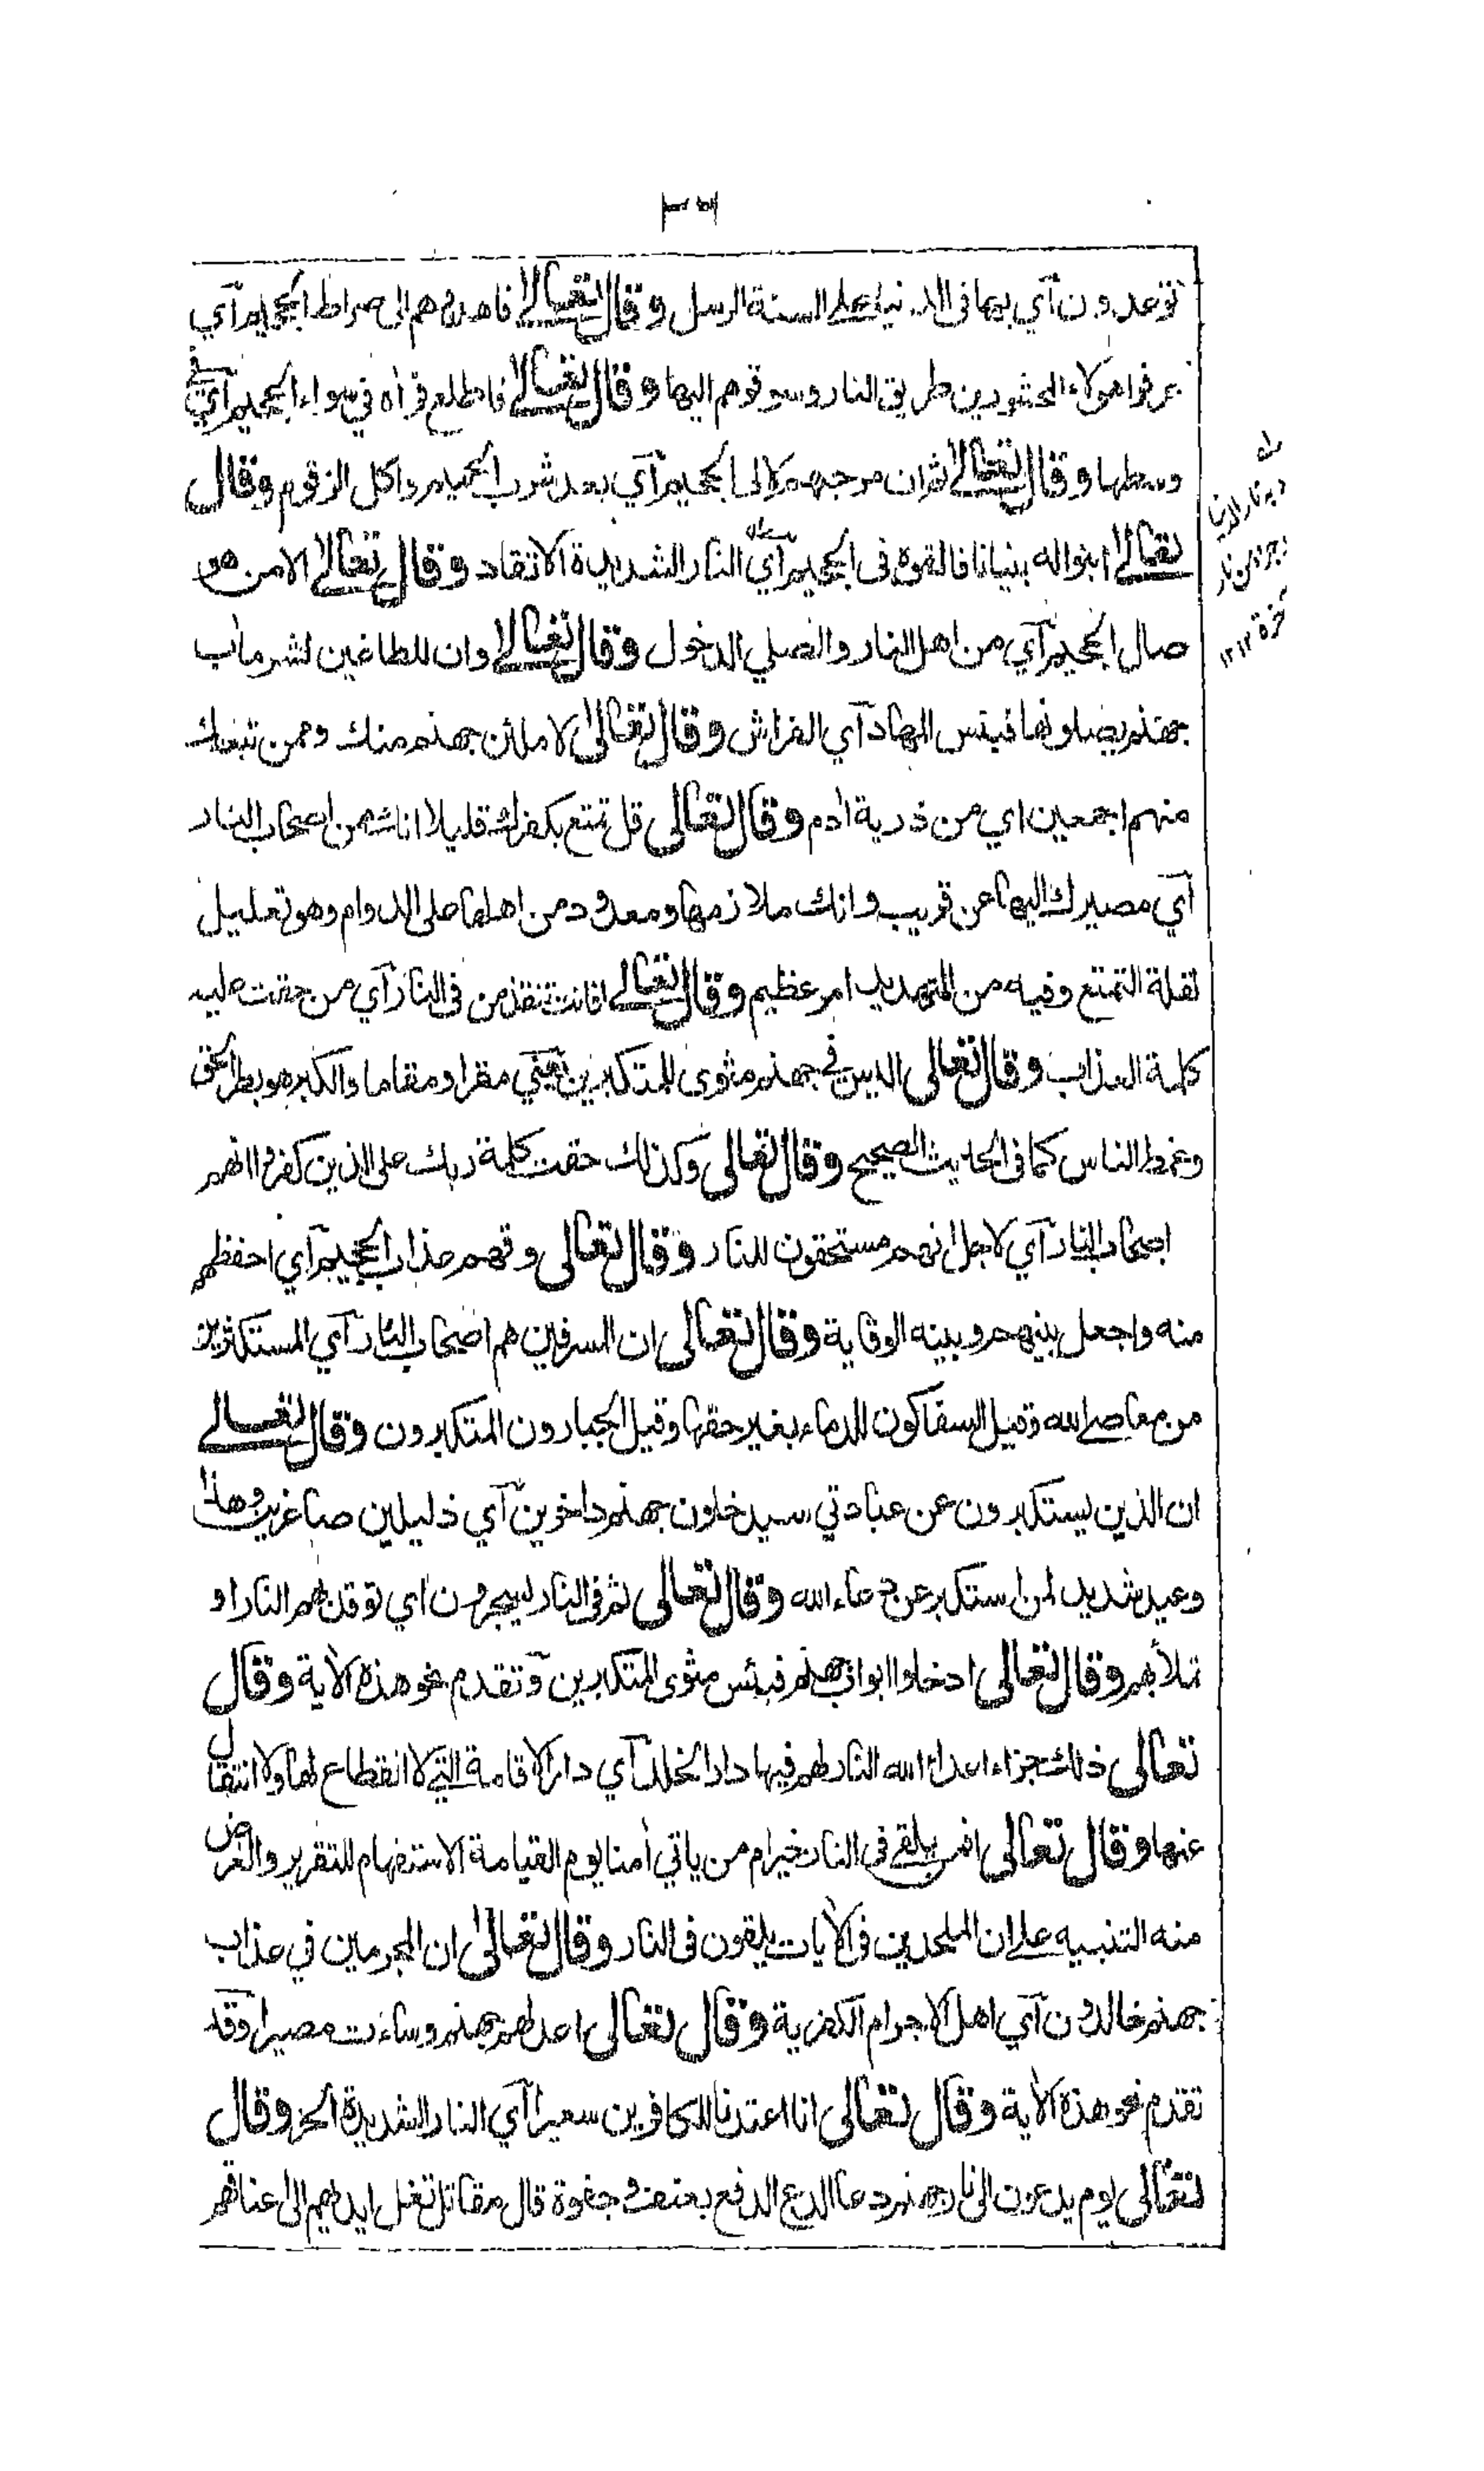 توعدون أي بها في الدنيا على السنة الرسل وقال تعالى فاهدوهم الى صراط الجحيم أي
عرفوا هولاء المحشورين طريق النار وسوقوهم اليها وقال تعالى فاطلع فرأه في سواء الجحيم أي في
وسطها وقال تعالى ثم ان مرجعهم لا الى الجحيم أي بعد شرب الحميم واكل الزقوم وقال
تعالى ابنوا له بنيانا فالقوه في الجحيم أي النار الشديدة الاتقاد وقال تعالى الا من هو
صال الجحيم أي من اهل النار والصلي الدخول وقال تعالى وان للطاغين لشر مأب
جهنم يصلونها فبئس المهاد أي الفراش وقال تعالى لاملأن جهنم منك وممن تبعك
منهم اجمعين اي من ذرية أدم وقال تعالى قل تمتع بكفرك قليلا انك من اصحاب النار
أي مصيرك اليها عن قريب وانك ملازمها ومعدود من اهلها على الدوام وهو تعليل
لقلة التمتع وفيه من التهديد امر عظيم وقال تعالى افانت تنقذ من في النار أي من حقت عليه
كلمة العذاب وقال تعالى اليس في جهنم مثوى للمتكبرين يعني مقرا ومقاما والكبر هو بطر الحق
وغمط الناس كما في الحديث الصحيح وقال تعالى وكذلك حقت كلمة ربك على الذين كفروا انهم
اصحاب النار أي لاجل انهم مستحقون للنار وقال تعالى وقهم عذاب الجحيم أي احفظهم
منه واجعل بينهم وبينه الوقاية وقال تعالى ان المسرفين هم اصحاب النار أي المستكثرين
من معاصي الله وقيل السفاكون للدماء بغير حقها وقيل الجبارون المتكبرون وقال تعالى
ان الذين يستكبرون عن عبادتي سيدخلون جهنم داخرين أي ذليلين صاغرين وهذا
وعيد شديد لمن استكبر عن دعاء الله وقال تعالى ثم في النار يسجرون اي توقد بهم النار او
تملأ بهم وقال تعالى ادخلوا ابواب جهنم فبئس مثوى المتكبرين وتقدم نحو هذه الأية وقال
تعالى ذلك جزاء اعداء الله النار لهم فيها دار الخلد أي دار الاقامة التي لا انقطاع لها ولا انتقال
عنها وقال تعالى افمن يلقى في النار خير ام من ياتي أمنا يوم القيامة الاستفهام للتقرير والغرض
منه التنبيه على ان الملحدين في الأيات يلقون في النار وقال تعالى ان المجرمين في عذاب
جهنم خالدون أي اهل الاجرام الكفرية وقال تعالى اعد لهم جهنم وساءت مصيرا وقد
تقدم نحو هذه الأية وقال تعالى انا اعتدنا للكافرين سعيرا أي النار الشديدة الحر وقال
تعالى يوم يدعون الى نار جهنم دعا الدع الدفع بعنف وجفوة قال مقاتل تغل ايديهم الى اعناقهم